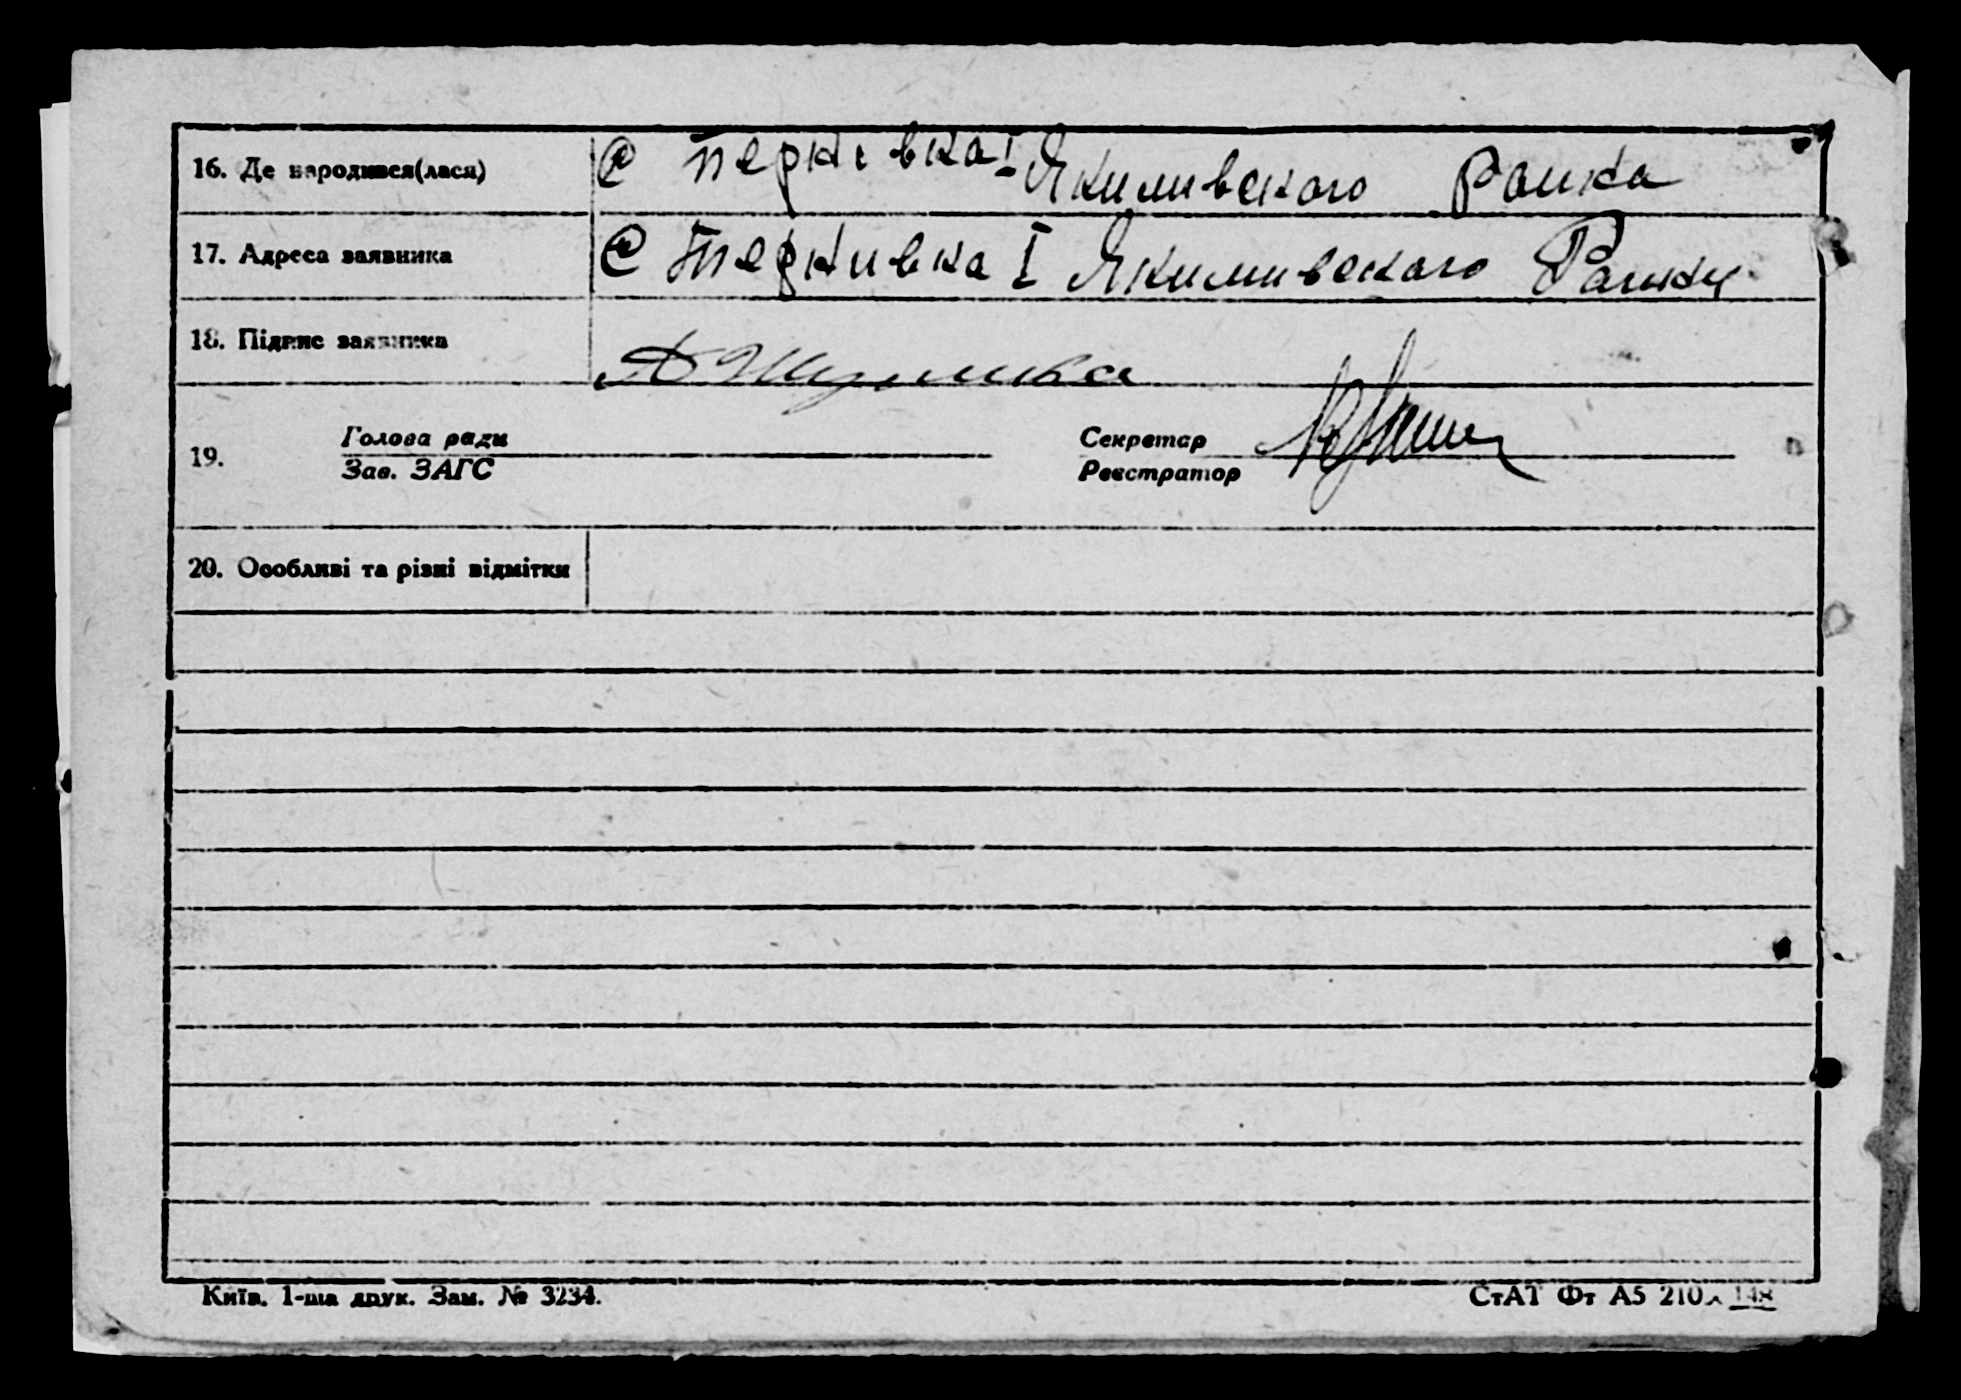 16. Де народився(лася) С Тернівка I Якимивского Раика
17. Адреса заявника С Тернивка I Якимивского Раику
18. Підпис заявника
19. Голова ради
Зав. ЗАГС
Секретар
Реєстратор
20. Особливі та різні відмітки
Київ. 1-ша друк. Зам. № 3234.
СтАТ Фт А5 210 × 148